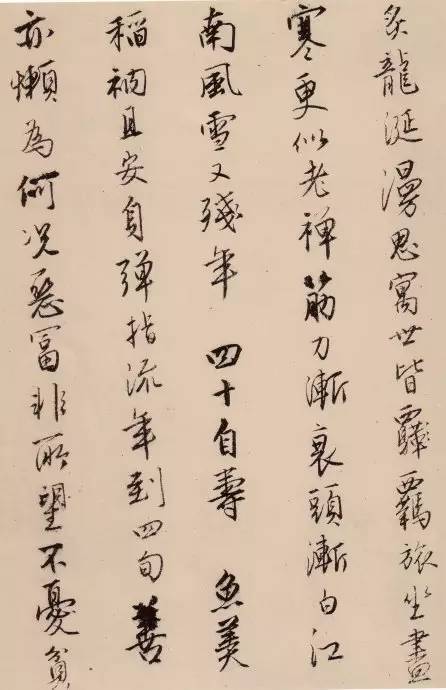 炙龍涎漫思寓世皆羈旅坐盡
寒更似老禪筋力漸衰頭漸白江
南風雪又殘年　四十自壽　魚羹
稻衲且安身彈指流年到四旬善
亦懶為何況惡富非所望不憂貧